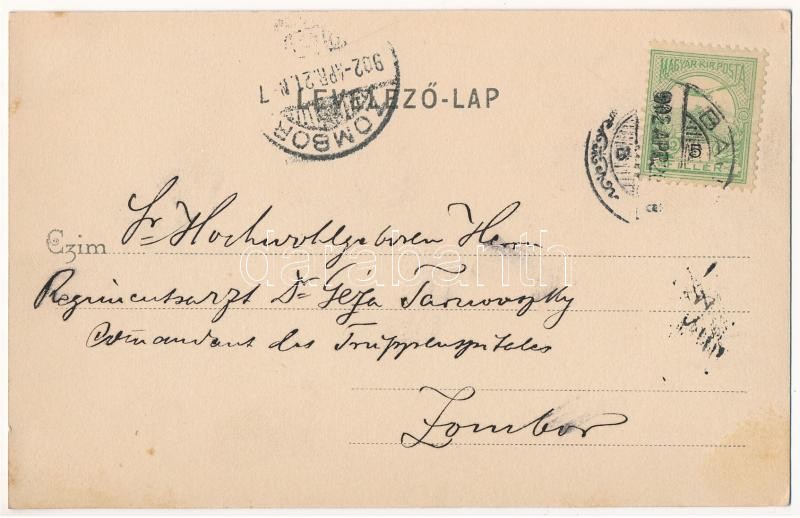 LEVELEZŐ-LAP
ZOMBOR
902 APR. 21. N. 7
MAGYAR·KIR·POSTA
FILLÉR
902 APR
BA
5
B
Czim
Sr Hochwohlgeboren Herrn
Regimentsarzt Dr Geza Tarnovszky
Comandant des Truppenspitales
Zombor
darabanth